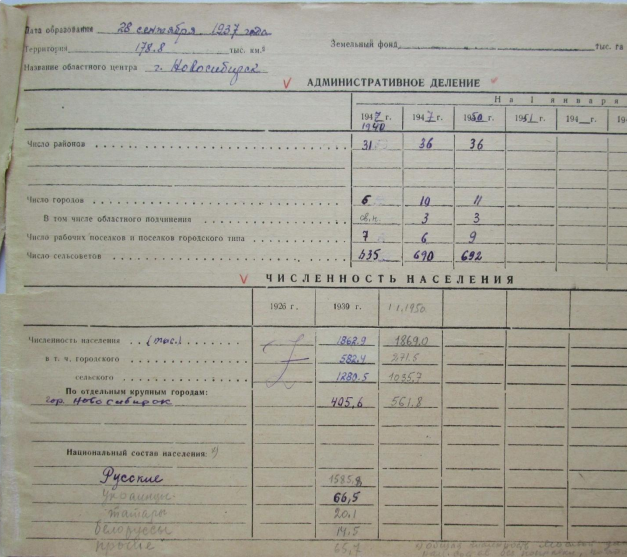 Дата образования 28 сентября 1937 года
Территория 178.8 тыс. км.² Земельный фонд тыс. га
Название областного центра г. Новосибирск
АДМИНИСТРАТИВНОЕ ДЕЛЕНИЕ
На 1 января
1947 г. 1947 г. 1950 г. 1951 г. 194 г. 194 г.
1940
Число районов 31 36 36
Число городов 6 10 11
В том числе областного подчинения 3 3
Число рабочих поселков и поселков городского типа 7 6 9
Число сельсоветов 635 690 692
ЧИСЛЕННОСТЬ НАСЕЛЕНИЯ
1926 г. 1939 г. 1.1.1950.
Численность населения (тыс.) 1862.9 1869.0
в т. ч. городского 582.4
сельского 1280.5 1035.7
По отдельным крупным городам:
гор. Новосибирск 405,6 561.8
Национальный состав населения:
Русские 1585,8
Украинцы 66,5
татары 20.1
белоруссы 14.5
прочие 65,7